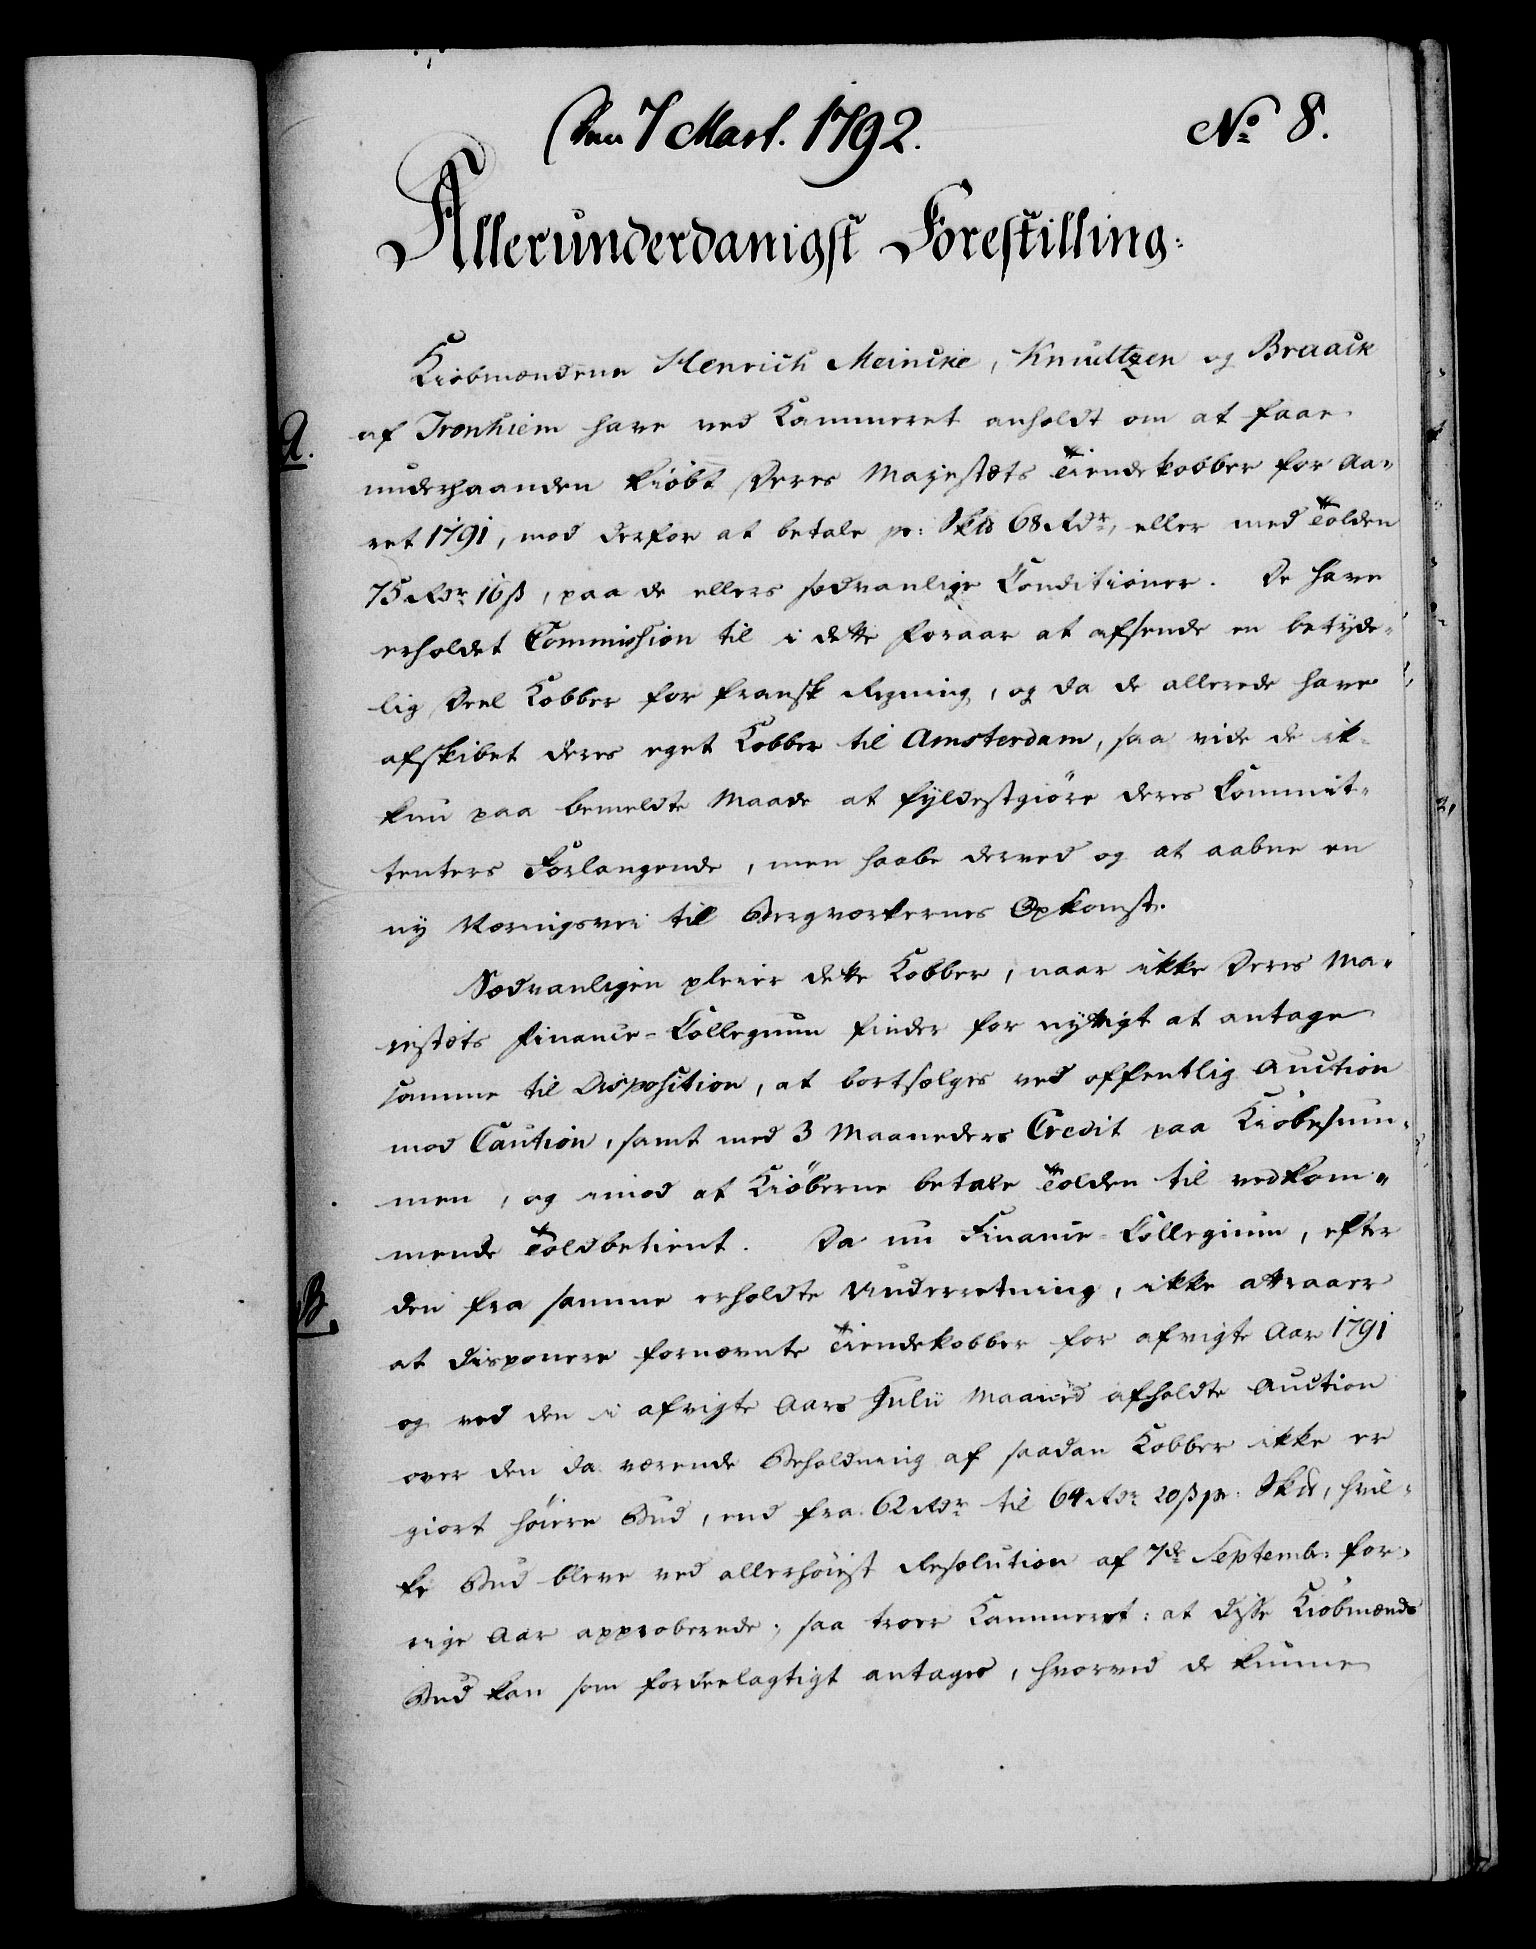 Den 7 Mart. 1792.
No 8.
Allerunderdanigst Forestilling:
Kiöbmændene Henrich Meincke, Knultzen og Braack
A.
af Tronhiem have ved Kammeret anholdt om at faae
underhaanden kiöbt Deres Majestæts Tiendekobber for Aa-
ret 1791, mod derfor at betale pr: Sk℔ 68 Rdr, eller med Tolden
75 Rdr 16 ß, paa de ellers sædvanlige Conditioner. De have
erholdet Commission til i dette Foraar at afsende en betyde-
lig Deel Kobber for fransk Regning, og da de allerede have
afskibet deres eget Kobber til Amsterdam, saa vide de ik-
kun paa bemeldte Maade at fyldestgiöre deres Commit-
tenters Forlangende, men haabe derved og at aabne en
ny Næringsvei til Bergværkernes Opkomst.
Sædvanligen pleier dette Kobber, naar ikke Deres Ma-
jestæts Finance-Collegium finder for nyttigt at antage
samme til Disposition, at bortsælges ved offentlig Auction
mod Caution, samt med 3 Maaneders Credit paa Kiöbesum-
men, og imod at Kiöberne betale Tolden til vedkom-
mende Toldbetient. Da nu Finance-Collegium, efter
B.
den fra samme erholdte Underretning, ikke attraaer
at disponere fornævnte Tiendekobber for afvigte Aar 1791
og ved den i afvigte Aars Julii Maaned afholdte Auction
over den da værende Beholdning af saadan Kobber ikke er
giort höiere Bud, end fra 62 Rdr til 64 Rdr 20 ß pr. Sk℔, hvil-
ke Bud bleve ved allerhöiest Resolution af 7de Septembr. for-
rige Aar approberede; saa troer Kammeret: at disse Kiöbmænds
Bud kan som fordeelagtigt antages, hvorved de kunne